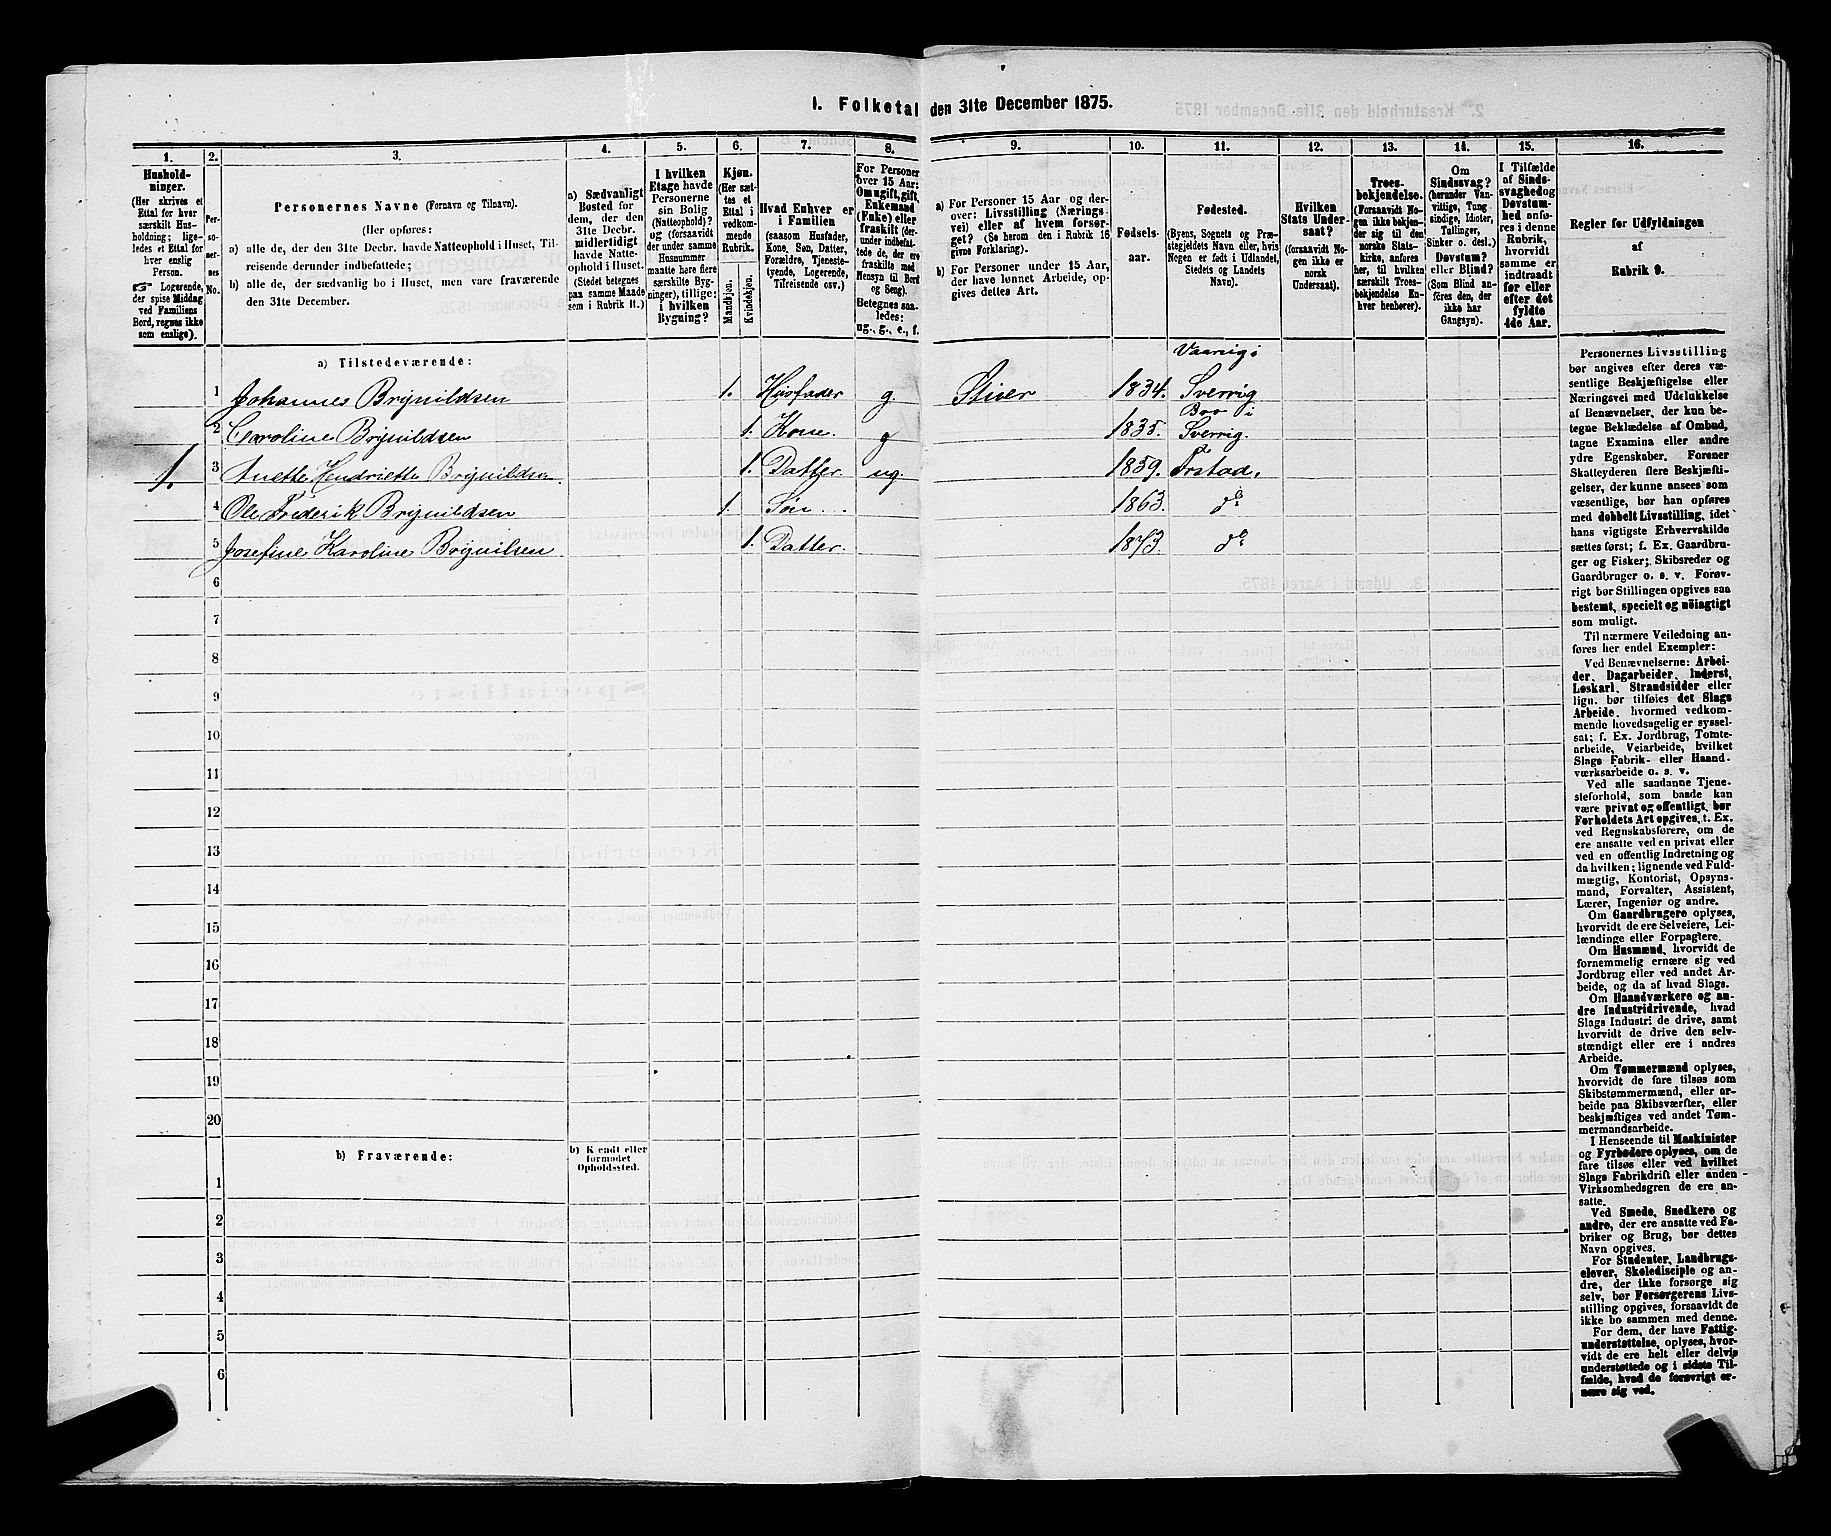 1. Folketal den 31te December 1875.
1. 2. 3. 4. 5. 6. 7. 8. 9. 10. 11. 12. 13. 14. 15. 16.
Hushold-
ninger.
(Her skrives et
Ettal for hver
særskilt Hus-
holdning; lige-
ledes et Ettal for
hver enslig
Person.
Logerende,
der spise Middag
ved Familiens
Bord, regnes ikke
som enslige).
Per-
so-
ner-
nes
No.
Personernes Navne (Fornavn og Tilnavn).
(Her opføres:
a) alle de, der den 31te Decbr. havde Natteophold i Huset, Til-
reisende derunder indbefattede;
b) alle de, der sædvanlig bo i Huset, men vare fraværende
den 31te December.
a) Sædvanligt
Bosted for
dem, der den
31te Decbr.
midlertidigt
havde Natte-
ophold i Huset.
(Stedet betegnes
paa samme Maade
som i Rubrik 11.)
I hvilken
Etage havde
Personerne
sin Bolig
(Natteophold)?
og (forsaavidt
der under samme
Husnummer
maatte høre flere
særskilte Byg-
ninger), tillige:
i hvilken
Bygning?
Kjøn.
(Her sæt-
tes et
Ettal i
vedkom-
mende
Rubrik.
Mandkjøn.
Kvindekjøn.
Hvad Enhver er
i Familien
(saasom Husfader,
Kone, Søn, Datter,
Forældre, Tjeneste-
tyende, Logerende,
Tilreisende osv.)
For Personer
over 15 Aar:
Om ugift, gift,
Enkemand
(Enke) eller
fraskilt (der-
under indbefat-
tede de, der ere
fraskilte med
Hensyn til Bord
og Seng).
Betegnes saa-
ledes:
ug., g., e., f.
a) For Personer 15 Aar og der-
over: Livsstilling (Nærings-
vei) eller af hvem forsør-
get? (Se herom den i Rubrik 16
givne Forklaring).
b) For Personer under 15 Aar,
der have lønnet Arbeide, op-
gives dettes Art.
Fødsels-
aar.
Fødested.
(Byens, Sognets og Præ-
stegjeldets Navn eller, hvis
Nogen er født i Udlandet,
Stedets og Landets
Navn).
Hvilken
Stats Under-
saat?
(forsaavidt No-
gen ikke er
norsk
Undersaat).
Troes-
bekjendelse.
(Forsaavidt No-
gen ikke bekjen-
der sig til den
norske Stats-
kirke, anføres
her, til hvilken
særskilt Troes-
bekjendelse En-
hver henhører).
Om
Sindssvag?
(herunder Van-
vittige, Tung-
sindige, Idioter,
Tullinger,
Sinker o. desl.)
Døvstum?
eller Blind?
(Som Blind an-
føres den, der
ikke har
Gangsyn).
I Tilfælde
af Sinds-
svaghed og
Døvstum-
hed anfø-
res i denne
Rubrik,
hvorvidt
samme er
indtraadt
før eller
efter det
fyldte
4de Aar.
Regler for Udfyldningen
af
Rubrik 9.
a) Tilstedeværende: Vaarvig i
1 Johannes Brynildsen 1. Husfader g Stuer 1834. Sverrig
Boo i
2 Caroline Brynildsen 1. Kone g 1835. Sverrig.
1. 3 Anette Hendriette Brynildsen 1. Datter. ug. 1859. Frstad,
4 Ole Frederik Brynildsen 1. Søn 1863. do
5 Josefine Karoline Brynilsen 1. Datter. 1873. do
6
7
8
9
10
11
12
13
14
15
16
17
18
19
20
b) Fraværende: b) Kjendt eller
formodet
Opholdssted.
1
2
3
4
5
6
Personernes Livsstilling
bør angives efter deres væ-
sentlige Beskjæftigelse eller
Næringsvei med Udelukkelse
af Benævnelser, der kun be-
tegne Beklædelse af Ombud,
tagne Examina eller andre
ydre Egenskaber. Forener
Skatteyderen flere Beskjæfti-
gelser, der kunne ansees som
væsentlige, bør han opføres
med dobbelt Livsstilling, idet
hans vigtigste Erhvervskilde
sættes først; f. Ex. Gaardbru-
ger og Fisker; Skibsreder og
Gaardbruger o. s. v. Forøv-
rigt bør Stillingen opgives saa
bestemt, specielt og nøiagtigt
som muligt.
Til nærmere Veiledning an-
føres her endel Exempler:
Ved Benævnelserne: Arbei-
der, Dagarbeider, Inderst,
Løskarl, Strandsidder eller
lign. bør tilføies det Slags
Arbeide, hvormed vedkom-
mende hovedsagelig er syssel-
sat; f. Ex. Jordbrug, Tomte-
arbeide, Veiarbeide, hvilket
Slags Fabrik- eller Haand-
værksarbeide o. s. v.
Ved alle saadanne Tjene-
steforhold, som baade kan
være privat og offentligt, bør
Forholdets Art opgives, t. Ex.
ved Regnskabsførere, om de
ere ansatte ved en privat eller
ved en offentlig Indretning og
da hvilken; lignende ved Fuld-
mægtig, Kontorist, Opsyns-
mand, Forvalter, Assistent,
Lærer, Ingeniør og andre.
Om Gaardbrugere oplyses,
hvorvidt de ere Selveiere, Lei-
lændinge eller Forpagtere.
Om Husmænd, hvorvidt de
fornemmelig ernære sig ved
Jordbrug eller ved andet Ar-
beide, og da af hvad Slags.
Om Haandværkere og an-
dre Industridrivende, hvad
Slags Industri de drive, samt
hvorvidt de drive den selv-
stændigt eller ere i andres
Arbeide.
Om Tømmermænd oplyses,
hvorvidt de fare tilsøs som
Skibstømmermænd, eller ar-
beide paa Skibsværfter, eller
beskjæftiges ved andet Tøm-
mermandsarbeide.
I Henseende til Maskinister
og Fyrbødere oplyses, om de
fare tilsøs eller ved hvilket
Slags Fabrikdrift eller anden
Virksomhedsgren de ere an-
satte.
Ved Smede, Snedkere og
andre, der ere ansatte ved Fa-
briker og Brug, bør dettes
Navn opgives.
For Studenter, Landbrugs-
elever, Skoledisciple og an-
dre, der ikke forsørge sig
selv, bør Forsørgerens Livs-
stilling opgives, forsaavidt de
ikke bo sammen med denne.
For dem, der have Fattig-
understøttelse, oplyses, hvor-
vidt de ere helt eller delvis
understøttede og i sidste Til-
fælde, hvad de forøvrigt er-
nære sig ved.